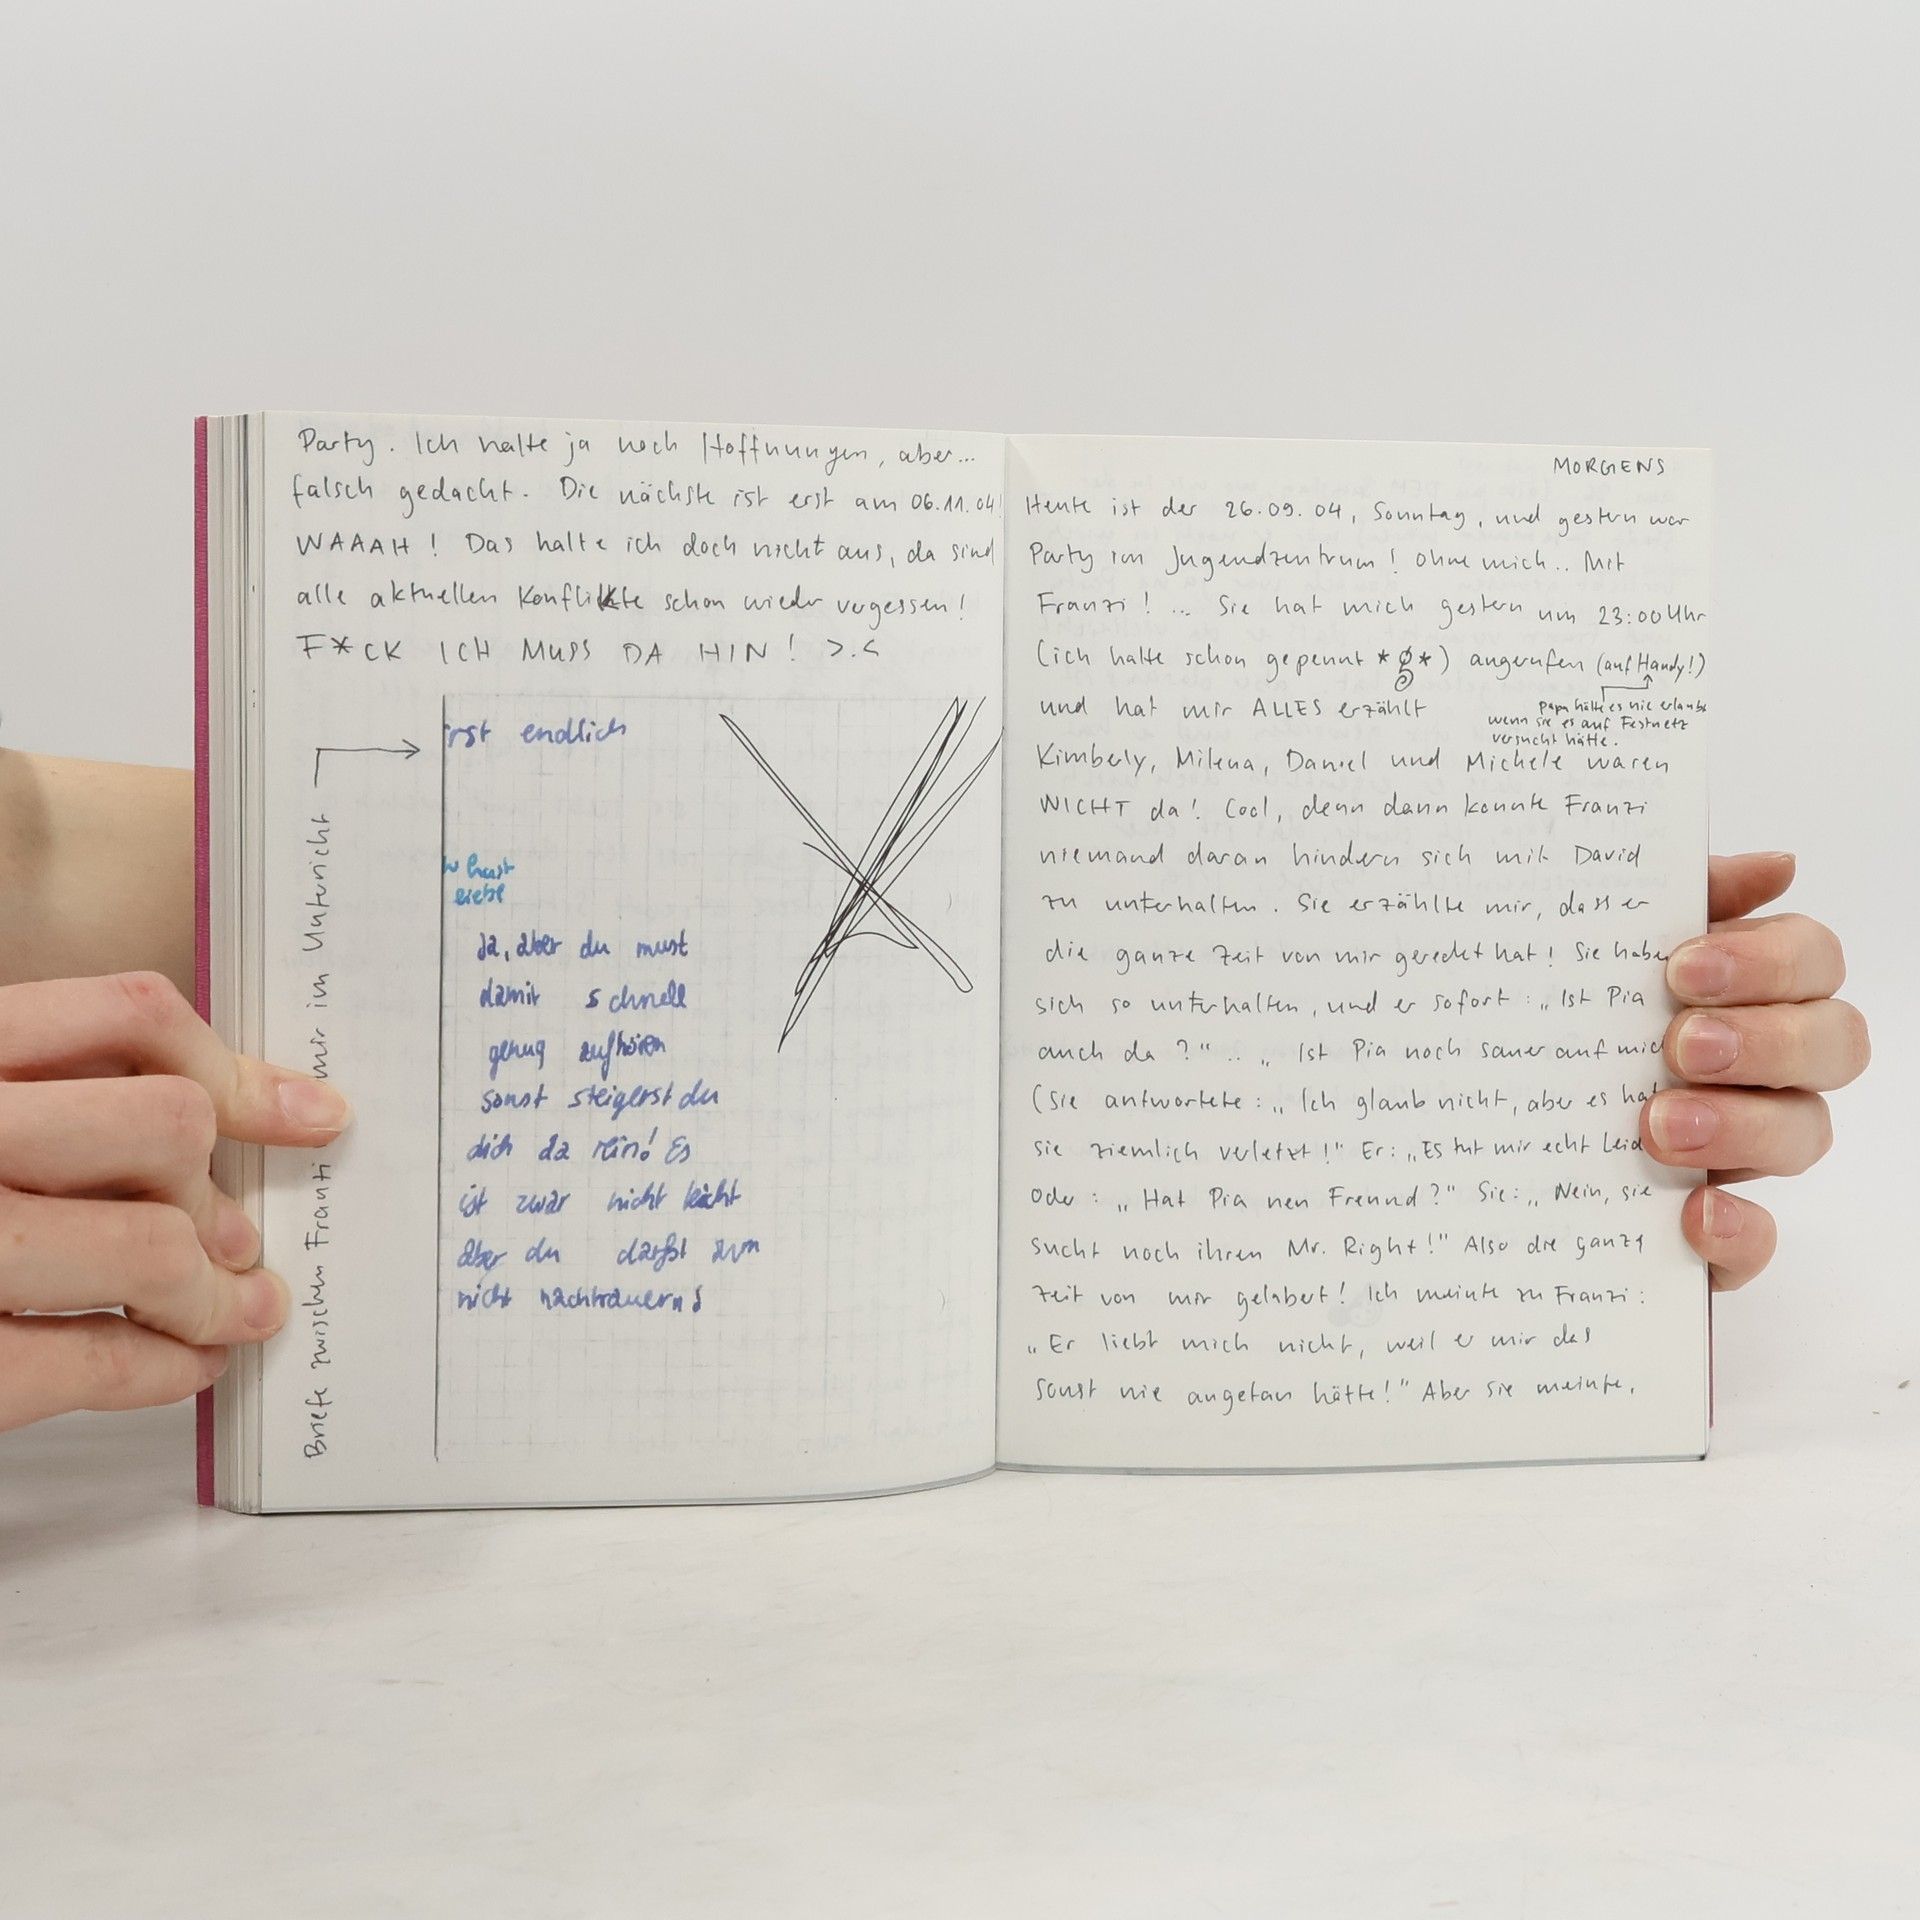 Party. Ich hatte ja noch Hoffnungen, aber...
falsch gedacht. Die nächste ist erst am 06.11.04!
WAAAH! Das halte ich doch nicht aus, da sind
alle aktuellen Konflikte schon wieder vergessen!
F*CK ICH MUSS DA HIN! >.<
Briefe zwischen Franzi mir im Unterricht
rst endlich
hast
liebe
Ja, aber du must
damit schnell
genug aufhören
sonst steigerst du
dich da rein! Es
ist zwar nicht leicht
aber du darfst ihm
nicht nachtrauern!
MORGENS
Heute ist der 26.09.04, Sonntag, und gestern war
Party im Jugendzentrum! Ohne mich.. Mit
Franzi! ... Sie hat mich gestern um 23:00 Uhr
(ich hatte schon gepennt *g*) angerufen (auf Handy!)
Papa hätte es nie erlaubt
wenn sie es auf Festnetz
versucht hätte.
und hat mir ALLES erzählt
Kimberly, Milena, Daniel und Michele waren
NICHT da! Cool, denn dann konnte Franzi
niemand daran hindern sich mit David
zu unterhalten. Sie erzählte mir, dass er
die ganze Zeit von mir geredet hat! Sie habe
sich so unterhalten, und er sofort: „Ist Pia
auch da?" .. „Ist Pia noch sauer auf mic
(Sie antwortete: „Ich glaub nicht, aber es hat
sie ziemlich verletzt!" Er: „Es tut mir echt Leid
Oder: „Hat Pia nen Freund?" Sie: „Nein, sie
sucht noch ihren Mr. Right!" Also die ganze
Zeit von mir gelabert! Ich meinte zu Franzi:
„Er liebt mich nicht, weil er mir das
sonst nie angetan hätte!" Aber sie meinte,